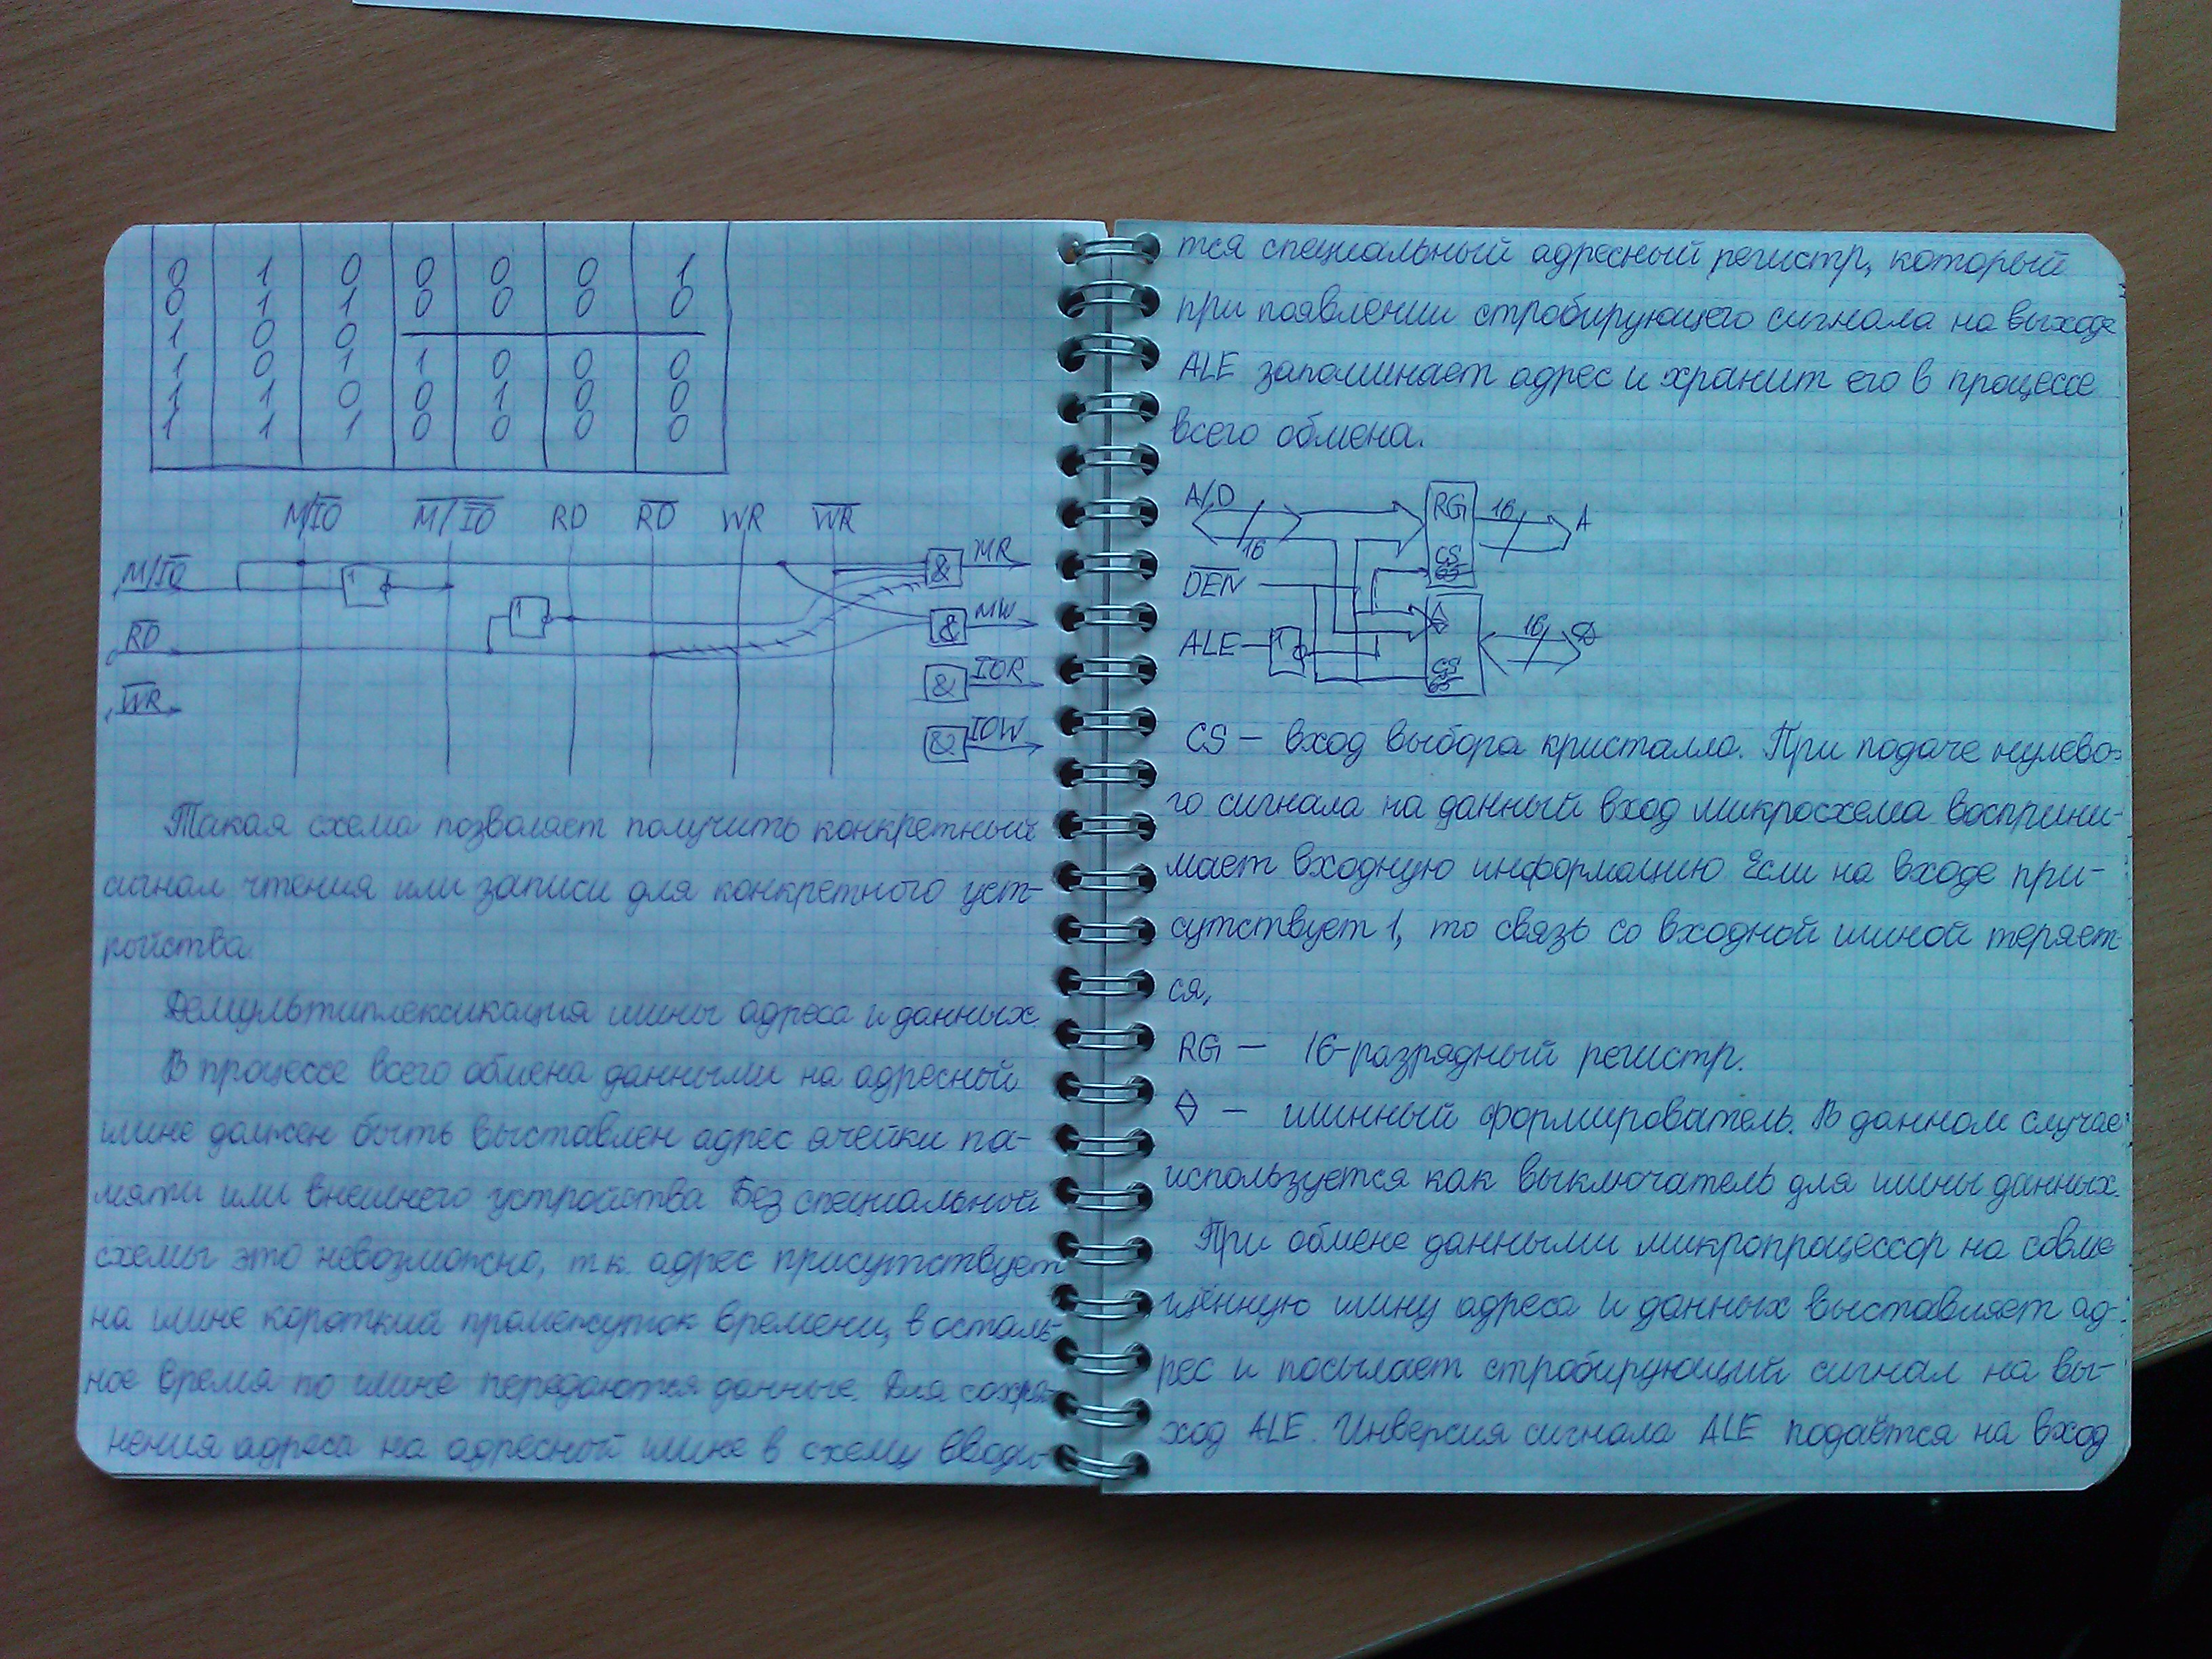 0 1 0 0 0 0 1
0 1 1 0 0 0 0
1 0 0
1 0 1 1 0 0 0
1 1 0 0 1 0 0
1 1 1 0 0 0 0
M/I̅O̅ M̅/̅I̅O̅ RD R̅D̅ WR W̅R̅
M/I̅O̅ 1 & MR
R̅D̅ 1 & MW
& IOR
W̅R̅
& IOW
Такая схема позволяет получить конкретный
сигнал чтения или записи для конкретного уст-
ройства.
Демультиплексикация шины адреса и данных.
В процессе всего обмена данными на адресной
шине должен быть выставлен адрес ячейки па-
мяти или внешнего устройства. Без специальной
схемы это невозможно, т.к. адрес присутствует
на шине короткий промежуток времени, в осталь-
ное время по шине передаются данные. Для сохра-
нения адреса на адресной шине в схему вводи-
тся специальный адресный регистр, который
при появлении стробирующего сигнала на выходе
ALE запоминает адрес и хранит его в процессе
всего обмена.
A/D 16 RG 16 A
CS
D̅E̅N̅
ALE 1 16 D
CS
CS — вход выбора кристалла. При подаче нулево-
го сигнала на данный вход микросхема восприни-
мает входную информацию. Если на входе при-
сутствует 1, то связь со входной шиной теряет-
ся.
RG — 16-разрядный регистр.
— шинный формирователь. В данном случае
используется как выключатель для шины данных.
При обмене данными микропроцессор на совме-
щённую шину адреса и данных выставляет ад-
рес и посылает стробирующий сигнал на вы-
ход ALE. Инверсия сигнала ALE подаётся на вход